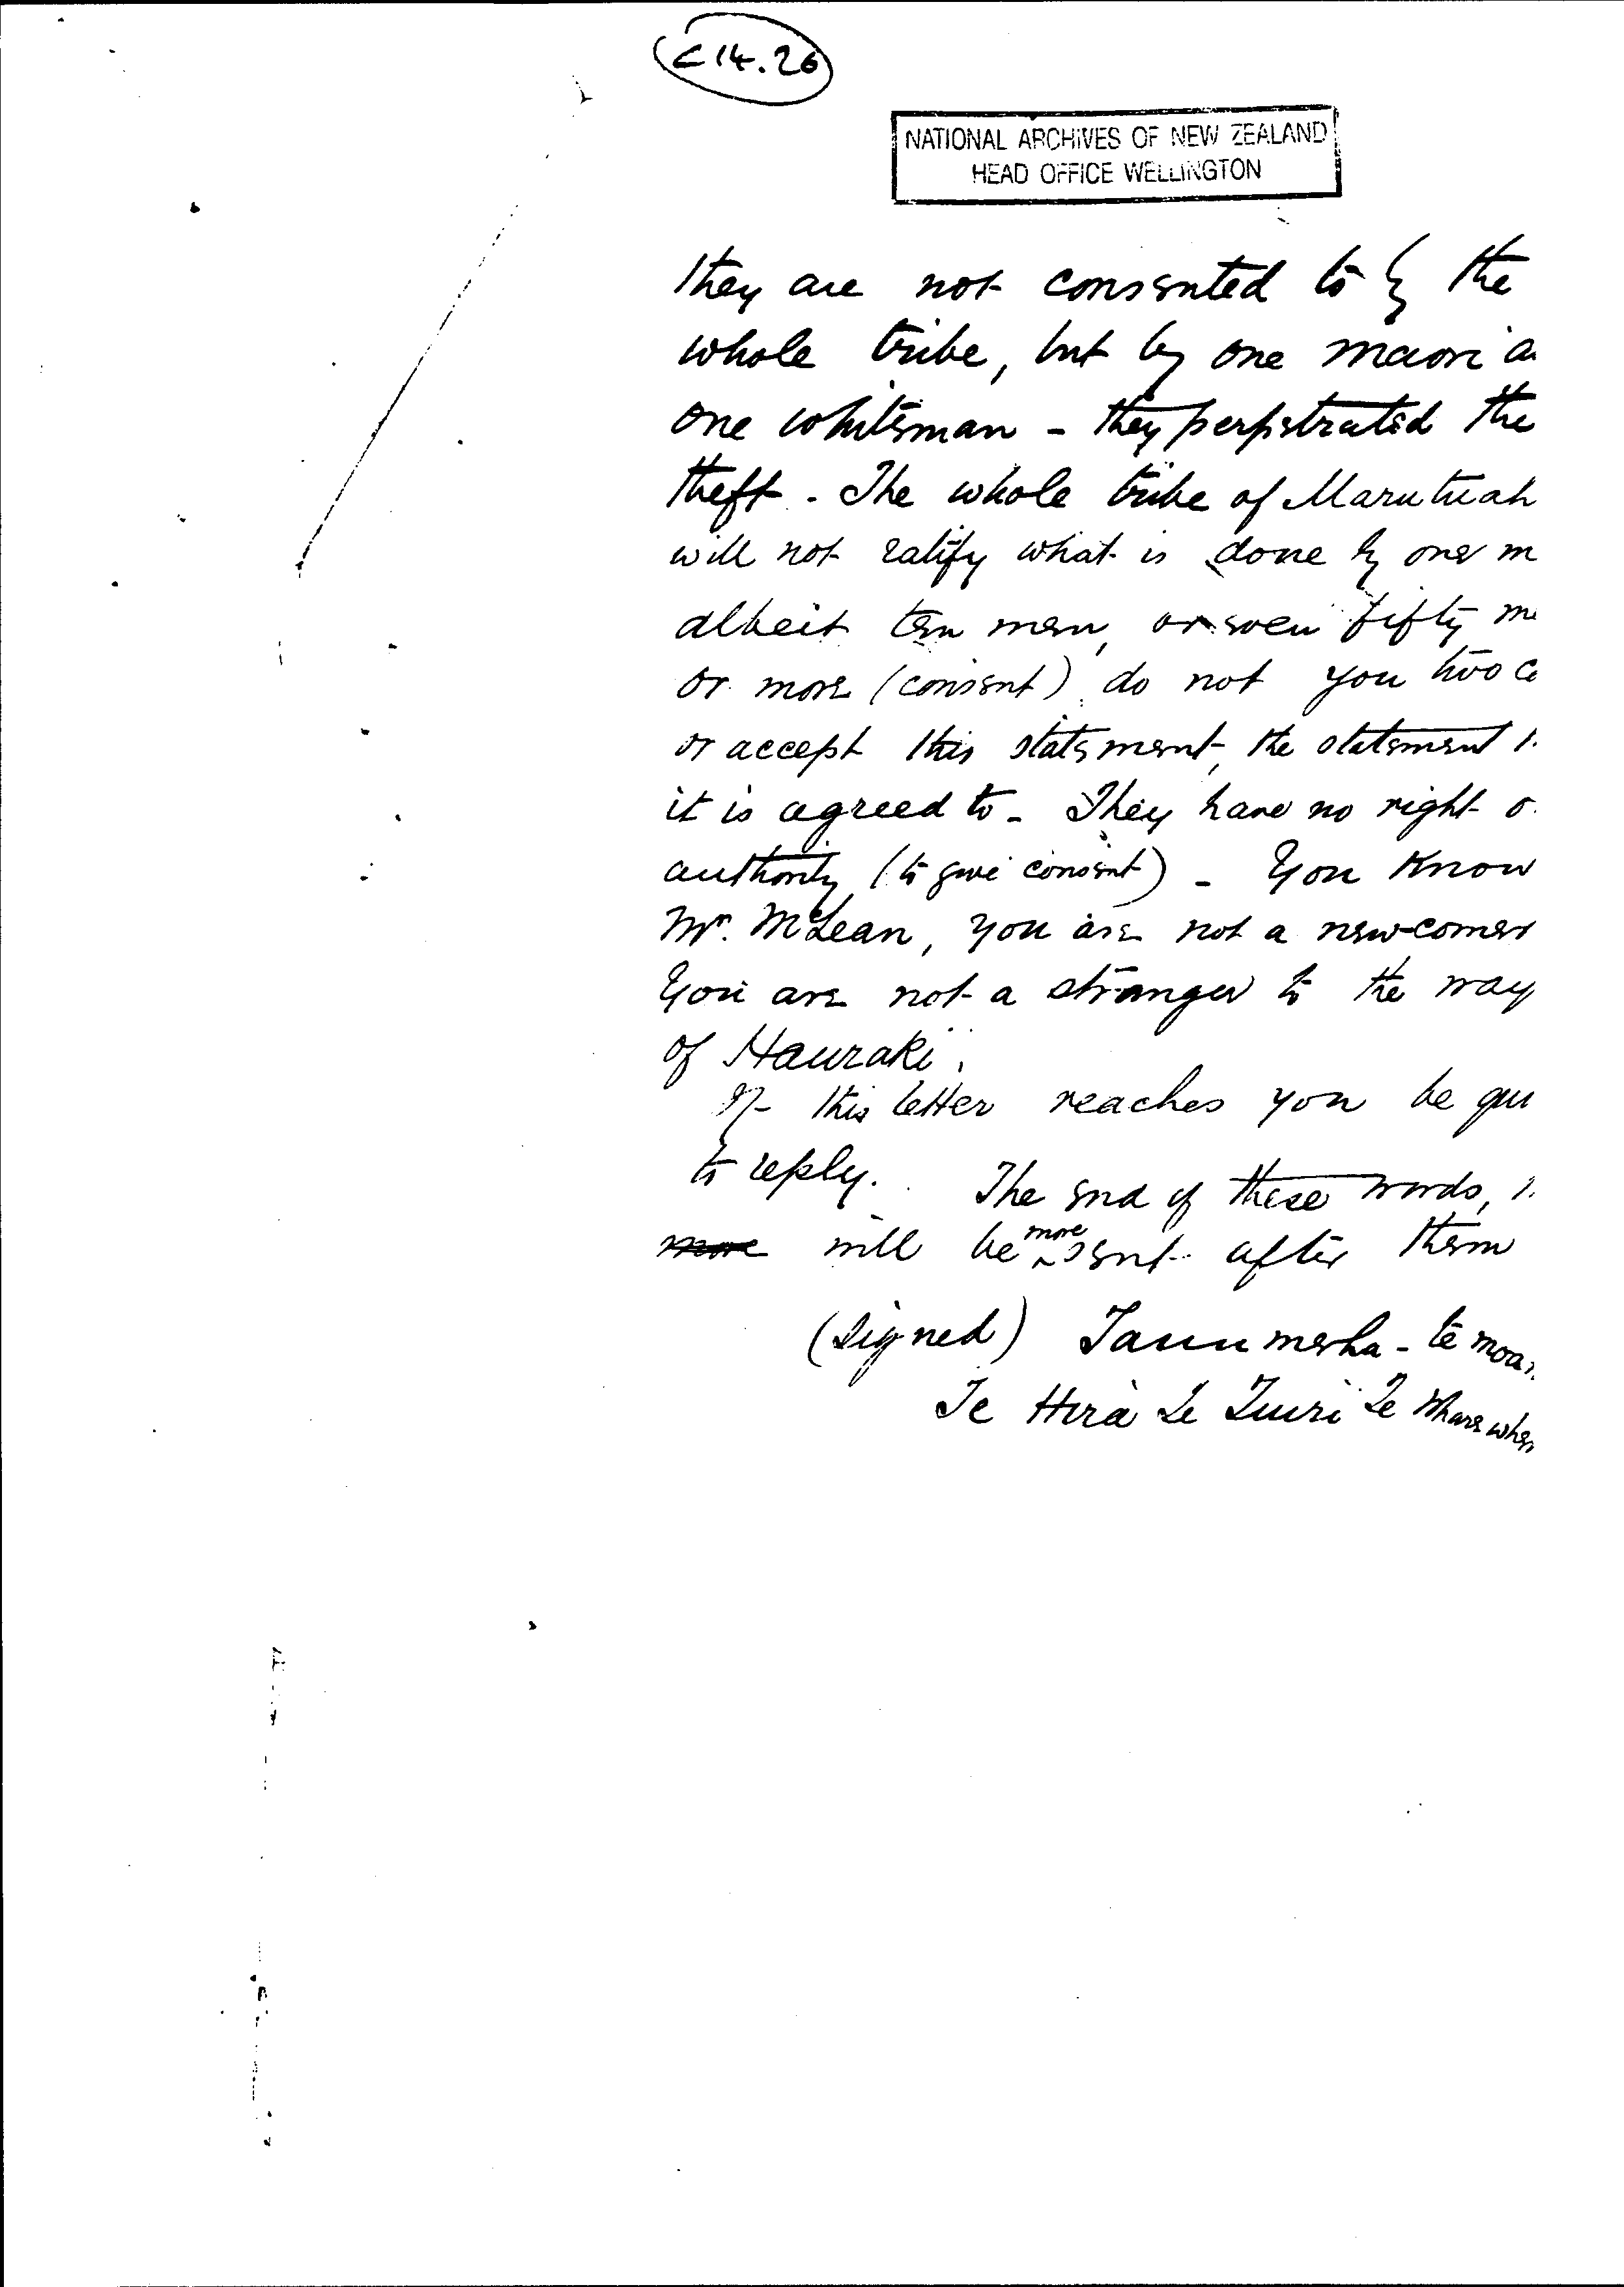 C14.26
NATIONAL ARCHIVES OF NEW ZEALAND
HEAD OFFICE WELLINGTON
they are not consented to by the
whole tribe, but by one maori a
one whiteman - they perpetrated the
theft. The whole tribe of Marutuah
will not ratify what is done by one m
albeit ten men, or even fifty me
or more (consent) do not you two co
or accept this statement, the statement
it is agreed to - They have no right o
authority (to give consent) - You Know
Mr. McLean, you are not a new-comer
You are not a stranger to the way
of Hauraki.
If this letter reaches you be qui
to reply. The end of these words,
more will be more sent after them
(signed) - te moan
Te Hira Te Tuiri Te Wharewhen